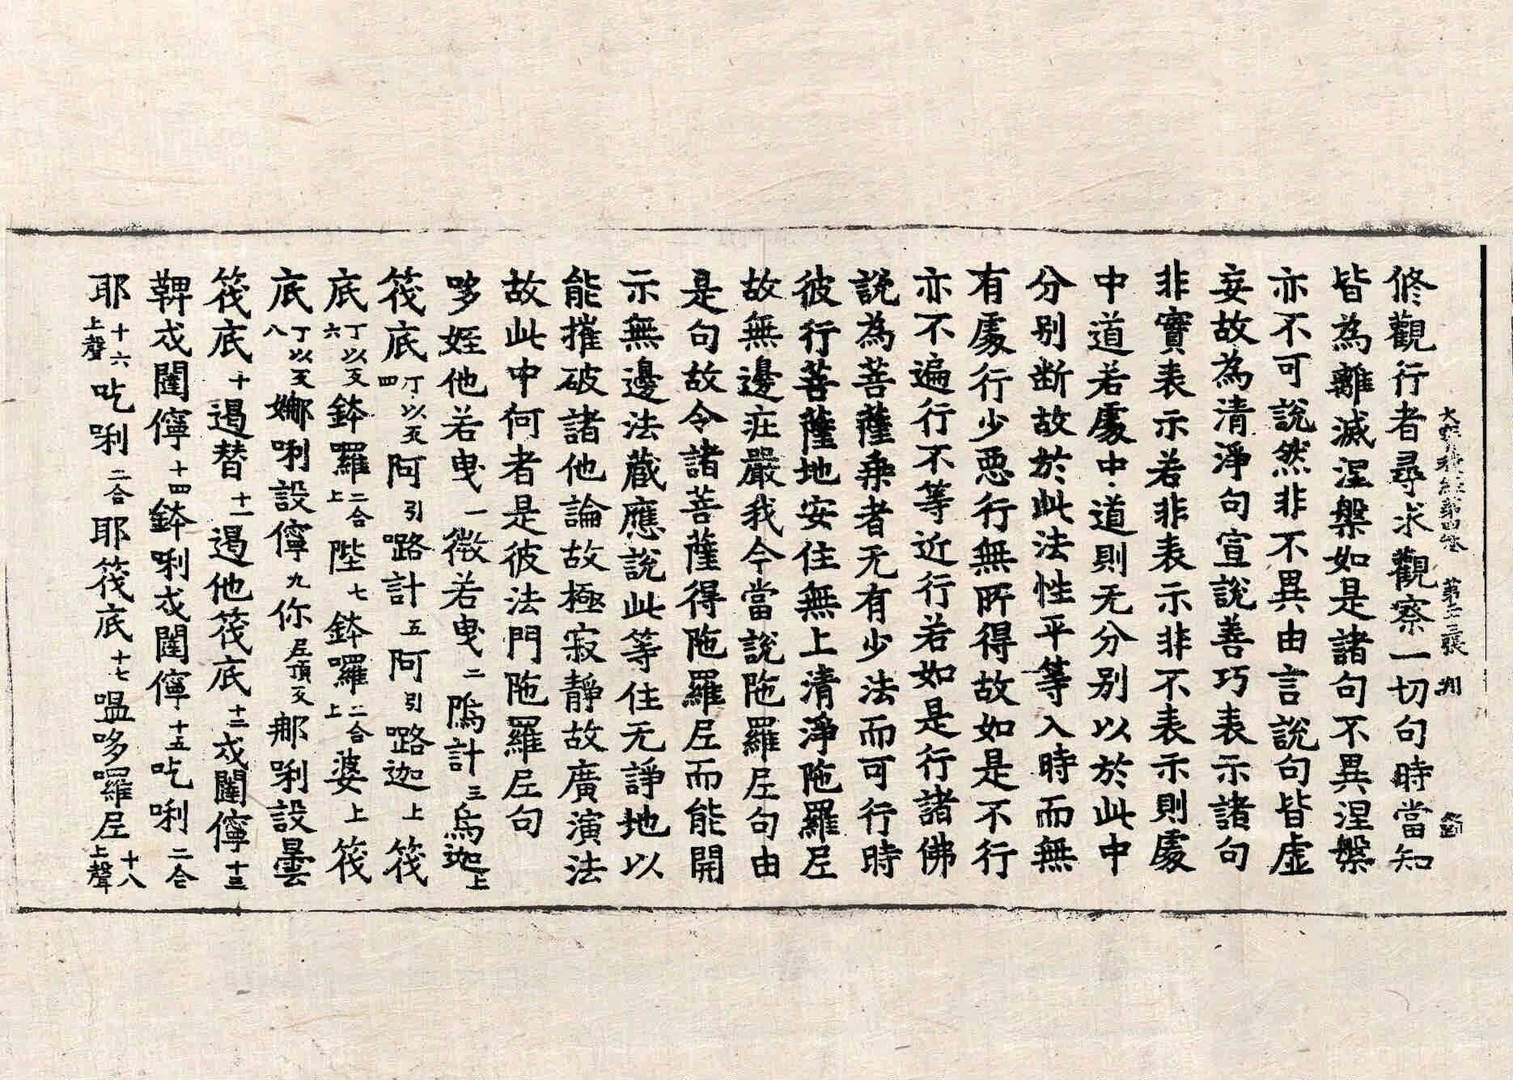 大寶積經第四卷 第十三張 翔
修觀行者尋求觀察一切句時當知
皆為離滅涅槃如是諸句不異涅槃
亦不可說然非不異由言說句皆虛
妄故為清淨句宣說善巧表示諸句
非實表示若非表示非不表示則處
中道若處中道則无分別以於此中
分别断故於此法性平等入時而無
有處行少惡行無所得故如是不行
亦不遍行不等近行若如是行諸佛
說為菩薩乘者无有少法而可行時
彼行菩薩地安住無上清淨陁羅尼
故無邊莊嚴我今當說陁羅尼句由
是句故令諸菩薩得陁羅尼而能開
示無邊法藏應說此等住无諍地以
能摧破諸他論故極寂靜故廣演法
故此中何者是彼法門陁羅尼句
哆姪他若曳一微若曳二隖計三烏迦上
筏底四丁以反阿引嚕計五阿引嚕迦上筏
底六丁以反鉢囉二合上陛七鉢囉二合上婆上筏
底八丁以反娜唎設儜九你尼頂反郍唎設曇
筏底十遏替十一遏他筏底十二戍闥儜十三
鞞戍闥儜十四鉢唎戍闥儜十五吃唎二合
耶十六上聲吃唎二合耶筏底十七嗢哆囉尼十八上聲